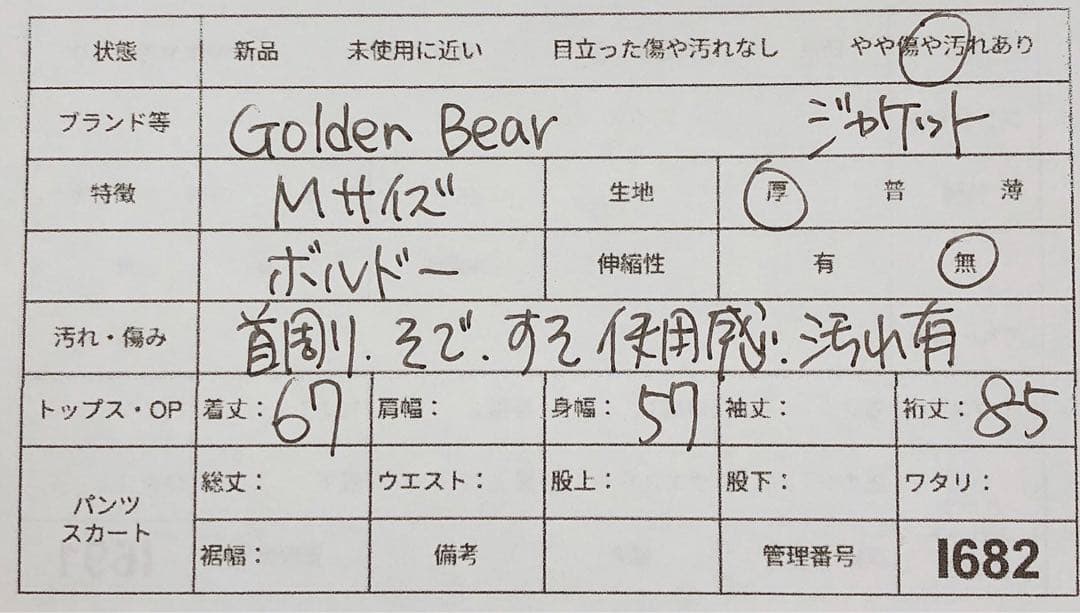 状態 新品 未使用に近い 目立った傷や汚れなし やや傷や汚れあり
ブランド等 Golden Bear ジャケット
特徴 Mサイズ 生地 厚 普 薄
ボルドー 伸縮性 有 無
汚れ・傷み 首周り、そで、すそ 使用感、汚れ有
トップス・OP 着丈：67 肩幅： 身幅：57 袖丈： 裄丈：85
パンツ
スカート
総丈： ウエスト： 股上： 股下： ワタリ：
裾幅： 備考 管理番号 I682